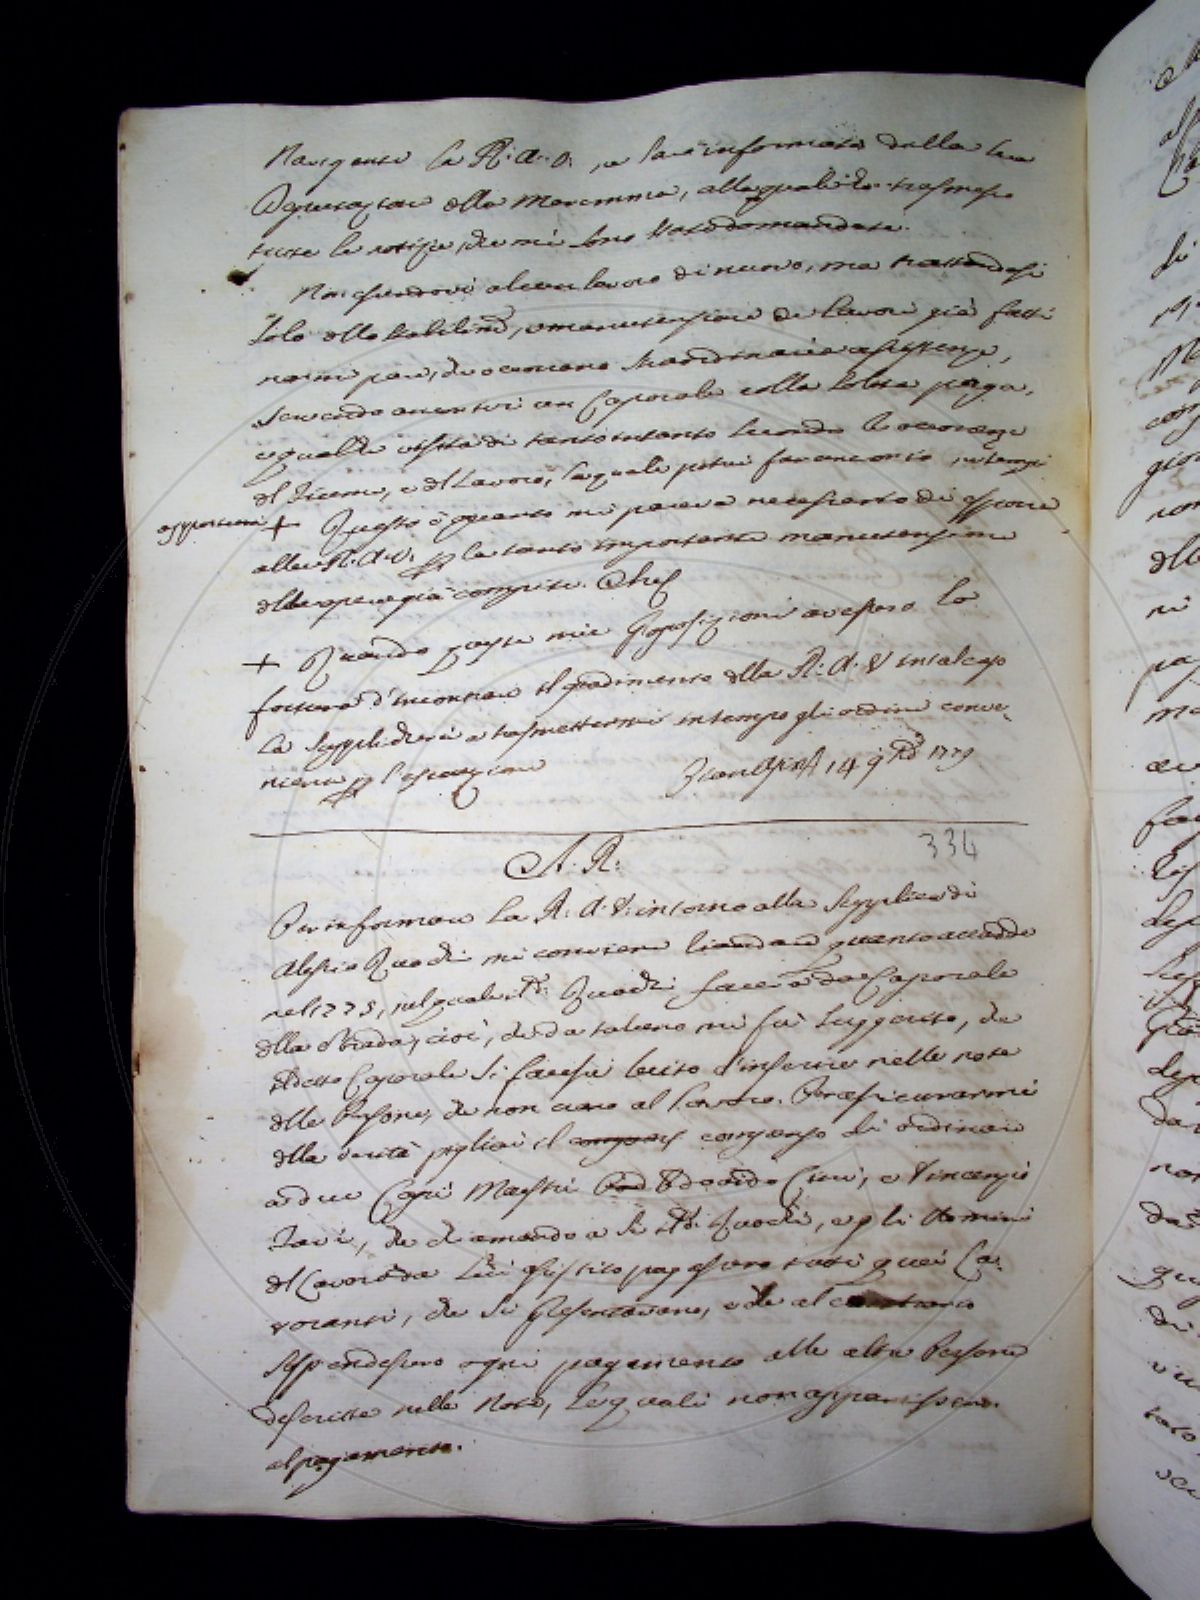 la R: A. V. e sarà informata dalla sua
Deputazione della Maremma, alla quale ho trasmesso
tutte le notizie, che mi sono state domandate.
Non essendovi alcun lavoro di nuovo, ma trattandosi
solo dello stabilimto, e manutenzione de lavori già fatti
non mi pare, che occorrano straordinarie assistenze,
servendo avervi un Caporale colla solita paga,
e qualche visita di tanto in tanto secondo le occorrenze
del Ticeni, e del Lavoro, la quale potrei fare anch'io, ne' tempi
opportuni + Questo è quanto mi pareva necessario di esporre
alla R. A. V. per la tanto importante manutenzione
delle opere già compite. Che se
+ Quando queste mie Proposizioni avessero la
fortuna d'incontrare il gradimento della R. A. V. in tal caso
La supplicherei a trasmettermi in tempo gli ordini conve-
nienti per l'esecuzione 14 9bre 1779
334
A. R.
Per informare La R. A. V. intorno alla supplica di
Alessio Quochi mi conviene quanto accadde
nel 1775, nel quale il do: Quochi faceva da Caporale
della strada, cioè, che da taluno mi fu suggerito, che
il detto Caporale si facesse lecito d'inserire nelle note
delle Persone, che non erano al Lavoro. Per assicurarmi
della verità pigliai il compenso di ordinare
a due Capi Maestri Edoardo Cieri, e Vincenzio
Tavi, che chiamando a se il do: Quochi, e per li Uomini
del Lavoro da assistito pagassero tutti quei La-
voranti, che si presentavano, e che al contrario
sospendessero ogni pagamento alle altre Persone
descritte nelle Note, le quali non apparissero
al pagamento.